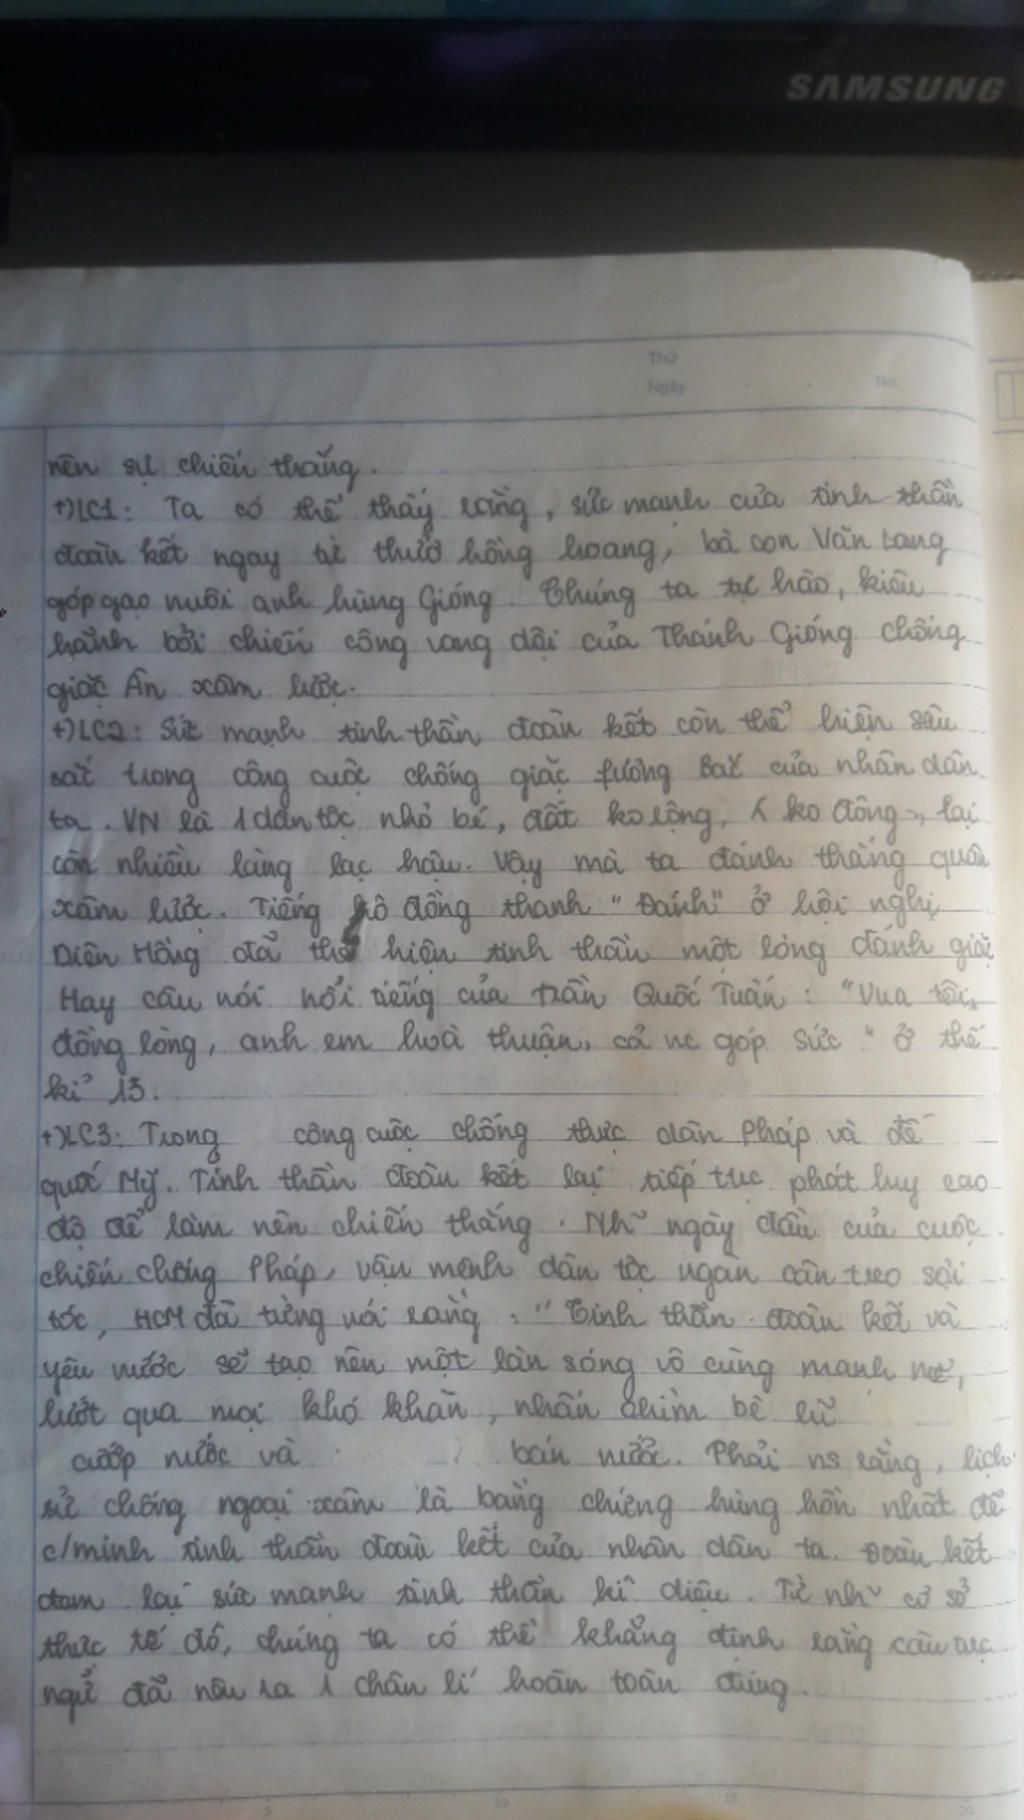 SAMSUNG
Thứ
Ngày No.
nên sự chiến thắng.
+) LC1: Ta có thể thấy rằng, sức mạnh của tinh thần
đoàn kết ngay từ thưở hồng hoang, bà con Văn Lang
góp gạo nuôi anh hùng Gióng. Chúng ta tự hào, kiêu
hãnh bởi chiến công vang dội của Thánh Gióng chống
giặc Ân xâm lược.
+) LC2: Sức mạnh tinh thần đoàn kết còn thể hiện sâu
sắc trong công cuộc chống giặc fương Bắc của nhân dân
ta. VN là 1 dân tộc nhỏ bé, đất ko rộng, ko đông, lại
còn nhiều làng lạc hậu. Vậy mà ta đánh thắng quân
xâm lược. Tiếng hô đồng thanh "Đánh" ở hội nghị
Diên Hồng đã thể hiện tinh thần một lòng đánh giặc
Hay câu nói nổi tiếng của Trần Quốc Tuấn: "Vua tôi
đồng lòng, anh em hoà thuận, cả nc góp sức" ở thế
kỉ 13.
+) LC3: Trong công cuộc chống thực dân Pháp và đế
quốc Mỹ. Tinh thần đoàn kết lại tiếp tục phát huy cao
độ để làm nên chiến thắng. Nh~ ngày đầu của cuộc
chiến chống Pháp, vận mệnh dân tộc ngàn cân treo sợi
tóc, HCM đã từng nói rằng: "Tinh thần đoàn kết và
yêu nước sẽ tạo nên một làn sóng vô cùng mạnh mẽ,
lướt qua mọi khó khăn, nhấn chìm bè lũ
cướp nước và bán nước. Phải ns rằng, lịch
sử chống ngoại xâm là bằng chứng hùng hồn nhất để
c/minh tinh thần đoàn kết của nhân dân ta. Đoàn kết
đem lại sức mạnh tinh thần kì diệu. Từ nh~ cơ sở
thực tế đó, chúng ta có thể khẳng định rằng câu tục
ngữ đã nêu ra 1 chân lí hoàn toàn đúng.
5 10 15 20